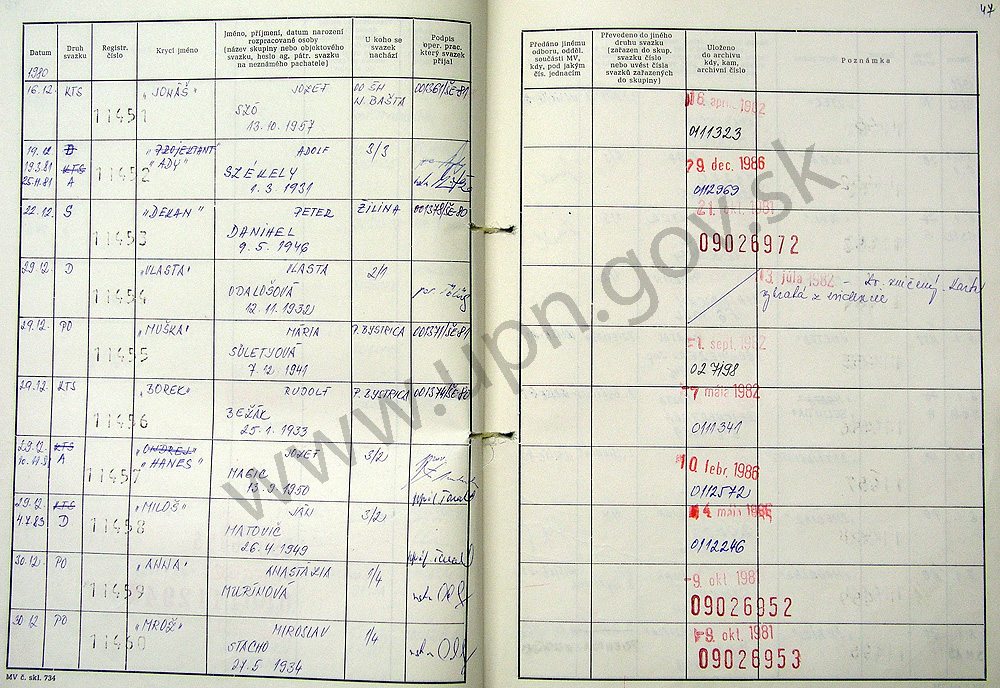 47
Datum
Druh svazku
Registr. číslo
Krycí jméno
Jméno, příjmení, datum narození rozpracované osoby (název skupiny nebo objektového svazku, heslo ag. pátr. svazku na neznámého pachatele)
U koho se svazek nachází
Podpis oper. prac. který svazek přijal
Předáno jinému odboru, odděl. součásti MV, kdy, pod jakým čís. jednacím
Převedeno do jiného druhu svazku (zařazen do skup. svazku číslo nebo uvést čísla svazků zařazených do skupiny)
Uloženo do archivu kdy, kam, archivní číslo
Poznámka
1980
16.12. KTS 11451 "JONÁŠ" JOZEF
SZÓ
13.10.1957
OO ŠH N. BAŠTA 001361/ŠE-81
16. apr. 1982
0111323
19.12. D
19.3.81 KTS
25.11.81 A
11452 "PROJEKTANT" "ADY" ADOLF
SZÉKELY
1.3.1931
3/3
9. dec. 1986
0112969
22.12. S 11453 "DEKAN" PETER
DANIHEL
9.5.1946
ŽILINA 001379/ŠE-80
21. okt. 1981
09026972
29.12. D 11454 "VLASTA" VLASTA
ODALOŠOVÁ
12.11.1932
2/1
13. júla 1982
29.12. PO 11455 "MUŠKA" MÁRIA
SÚLETYOVÁ
7.12.1941
P. BYSTRICA 001371/ŠE-81
1. sept. 1982
027198
29.12 KTS 11456 "BOREK" RUDOLF
BEŽÁK
25.1.1933
P. BYSTRICA 001374/ŠE-80
7 mája 1982
0111341
29.12. KTS
A
11457 "ONDREJ" "HANES" JOZEF
MAGIC
13.9.1950
3/2
10. febr. 1986
0112572
29.12 KTS
4.7.83 D
11458 "MILOŠ" JÁN
MATOVIČ
26.4.1949
3/2
0112246
30.12. PO 11459 "ANNA" ANASTAZIA
MURÍNOVÁ
1/4
9. okt 1981
09026952
30.12 PO 11460 "MROŽ" MIROSLAV
STACHO
27.5.1934
1/4
9. okt. 1981
09026953
MV č. skl. 734
www.upn.gov.sk